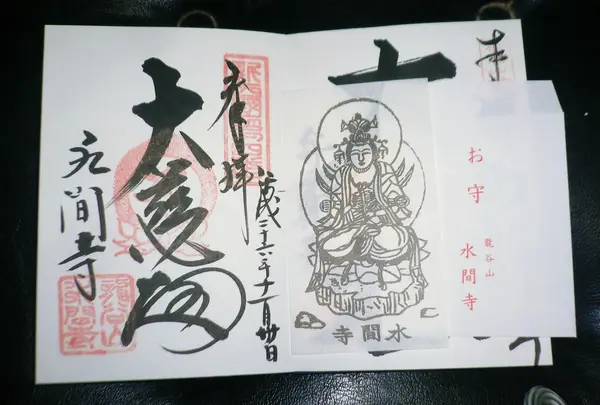 奉
お守
龍谷山
水間寺
水間寺
奉拝
二十六年十一月
大慈閣
水間寺